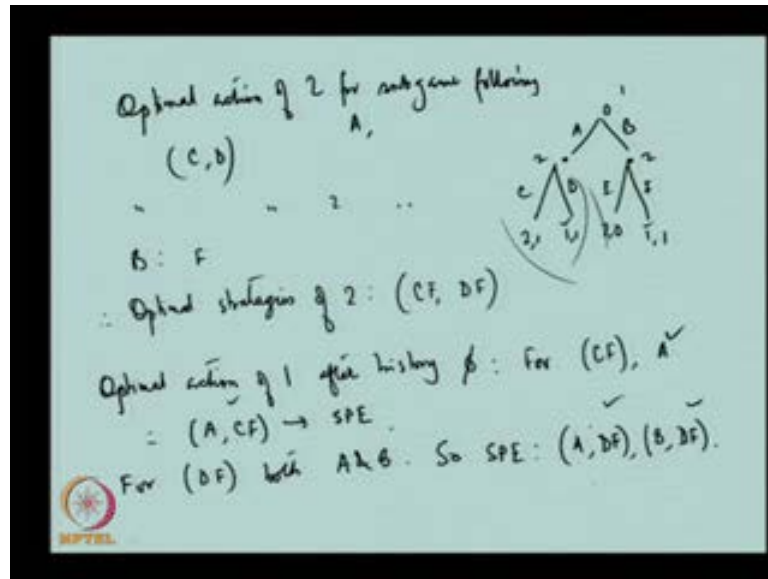 Optimal action of 2 for subgame following
A,
(C,D)
" " 2 "
B : F
∴ Optimal strategies of 2 : (CF, DF)
Optimal action of 1 after history ϕ : For (CF), A ✓
∴ (A, CF) → SPE.
For (DF) both A & B. So SPE : (A, DF), (B, DF).
1
A B
2 2
C D E F
2,1 1,1 2,0 1,1
NPTEL